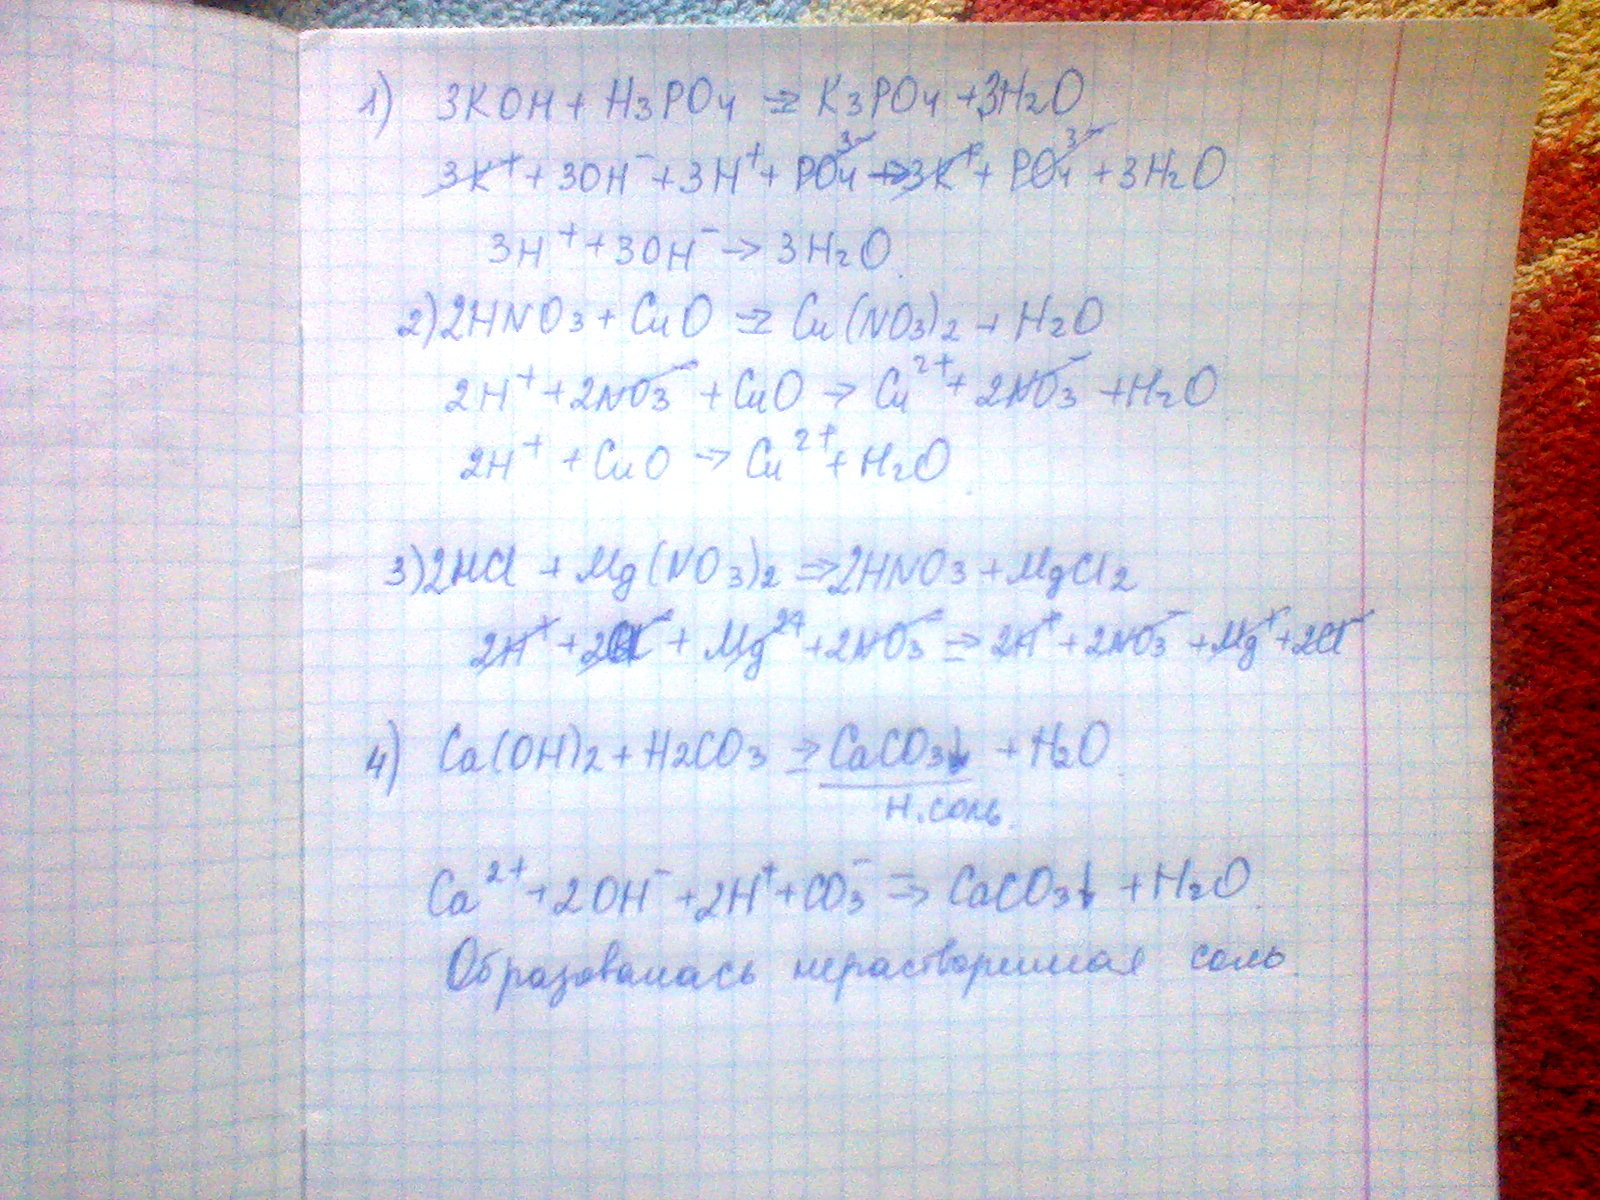 1) 3KOH + H3PO4 ⇒ K3PO4 + 3H2O
3K⁺ + 3OH⁻ + 3H⁺ + PO4³⁻ → 3K⁺ + PO4³⁻ + 3H2O
3H⁺ + 3OH⁻ → 3H2O.
2) 2HNO3 + CuO ⇒ Cu(NO3)2 + H2O
2H⁺ + 2NO3⁻ + CuO → Cu²⁺ + 2NO3⁻ + H2O
2H⁺ + CuO → Cu²⁺ + H2O.
3) 2HCl + Mg(NO3)2 ⇒ 2HNO3 + MgCl2
2H⁺ + 2Cl⁻ + Mg²⁺ + 2NO3⁻ ⇒ 2H⁺ + 2NO3⁻ + Mg⁺ + 2Cl⁻
4) Ca(OH)2 + H2CO3 ⇒ CaCO3↓ + H2O
н. соль.
Ca²⁺ + 2OH⁻ + 2H⁺ + CO3⁻ ⇒ CaCO3↓ + H2O.
Образовалась нерастворимая соль